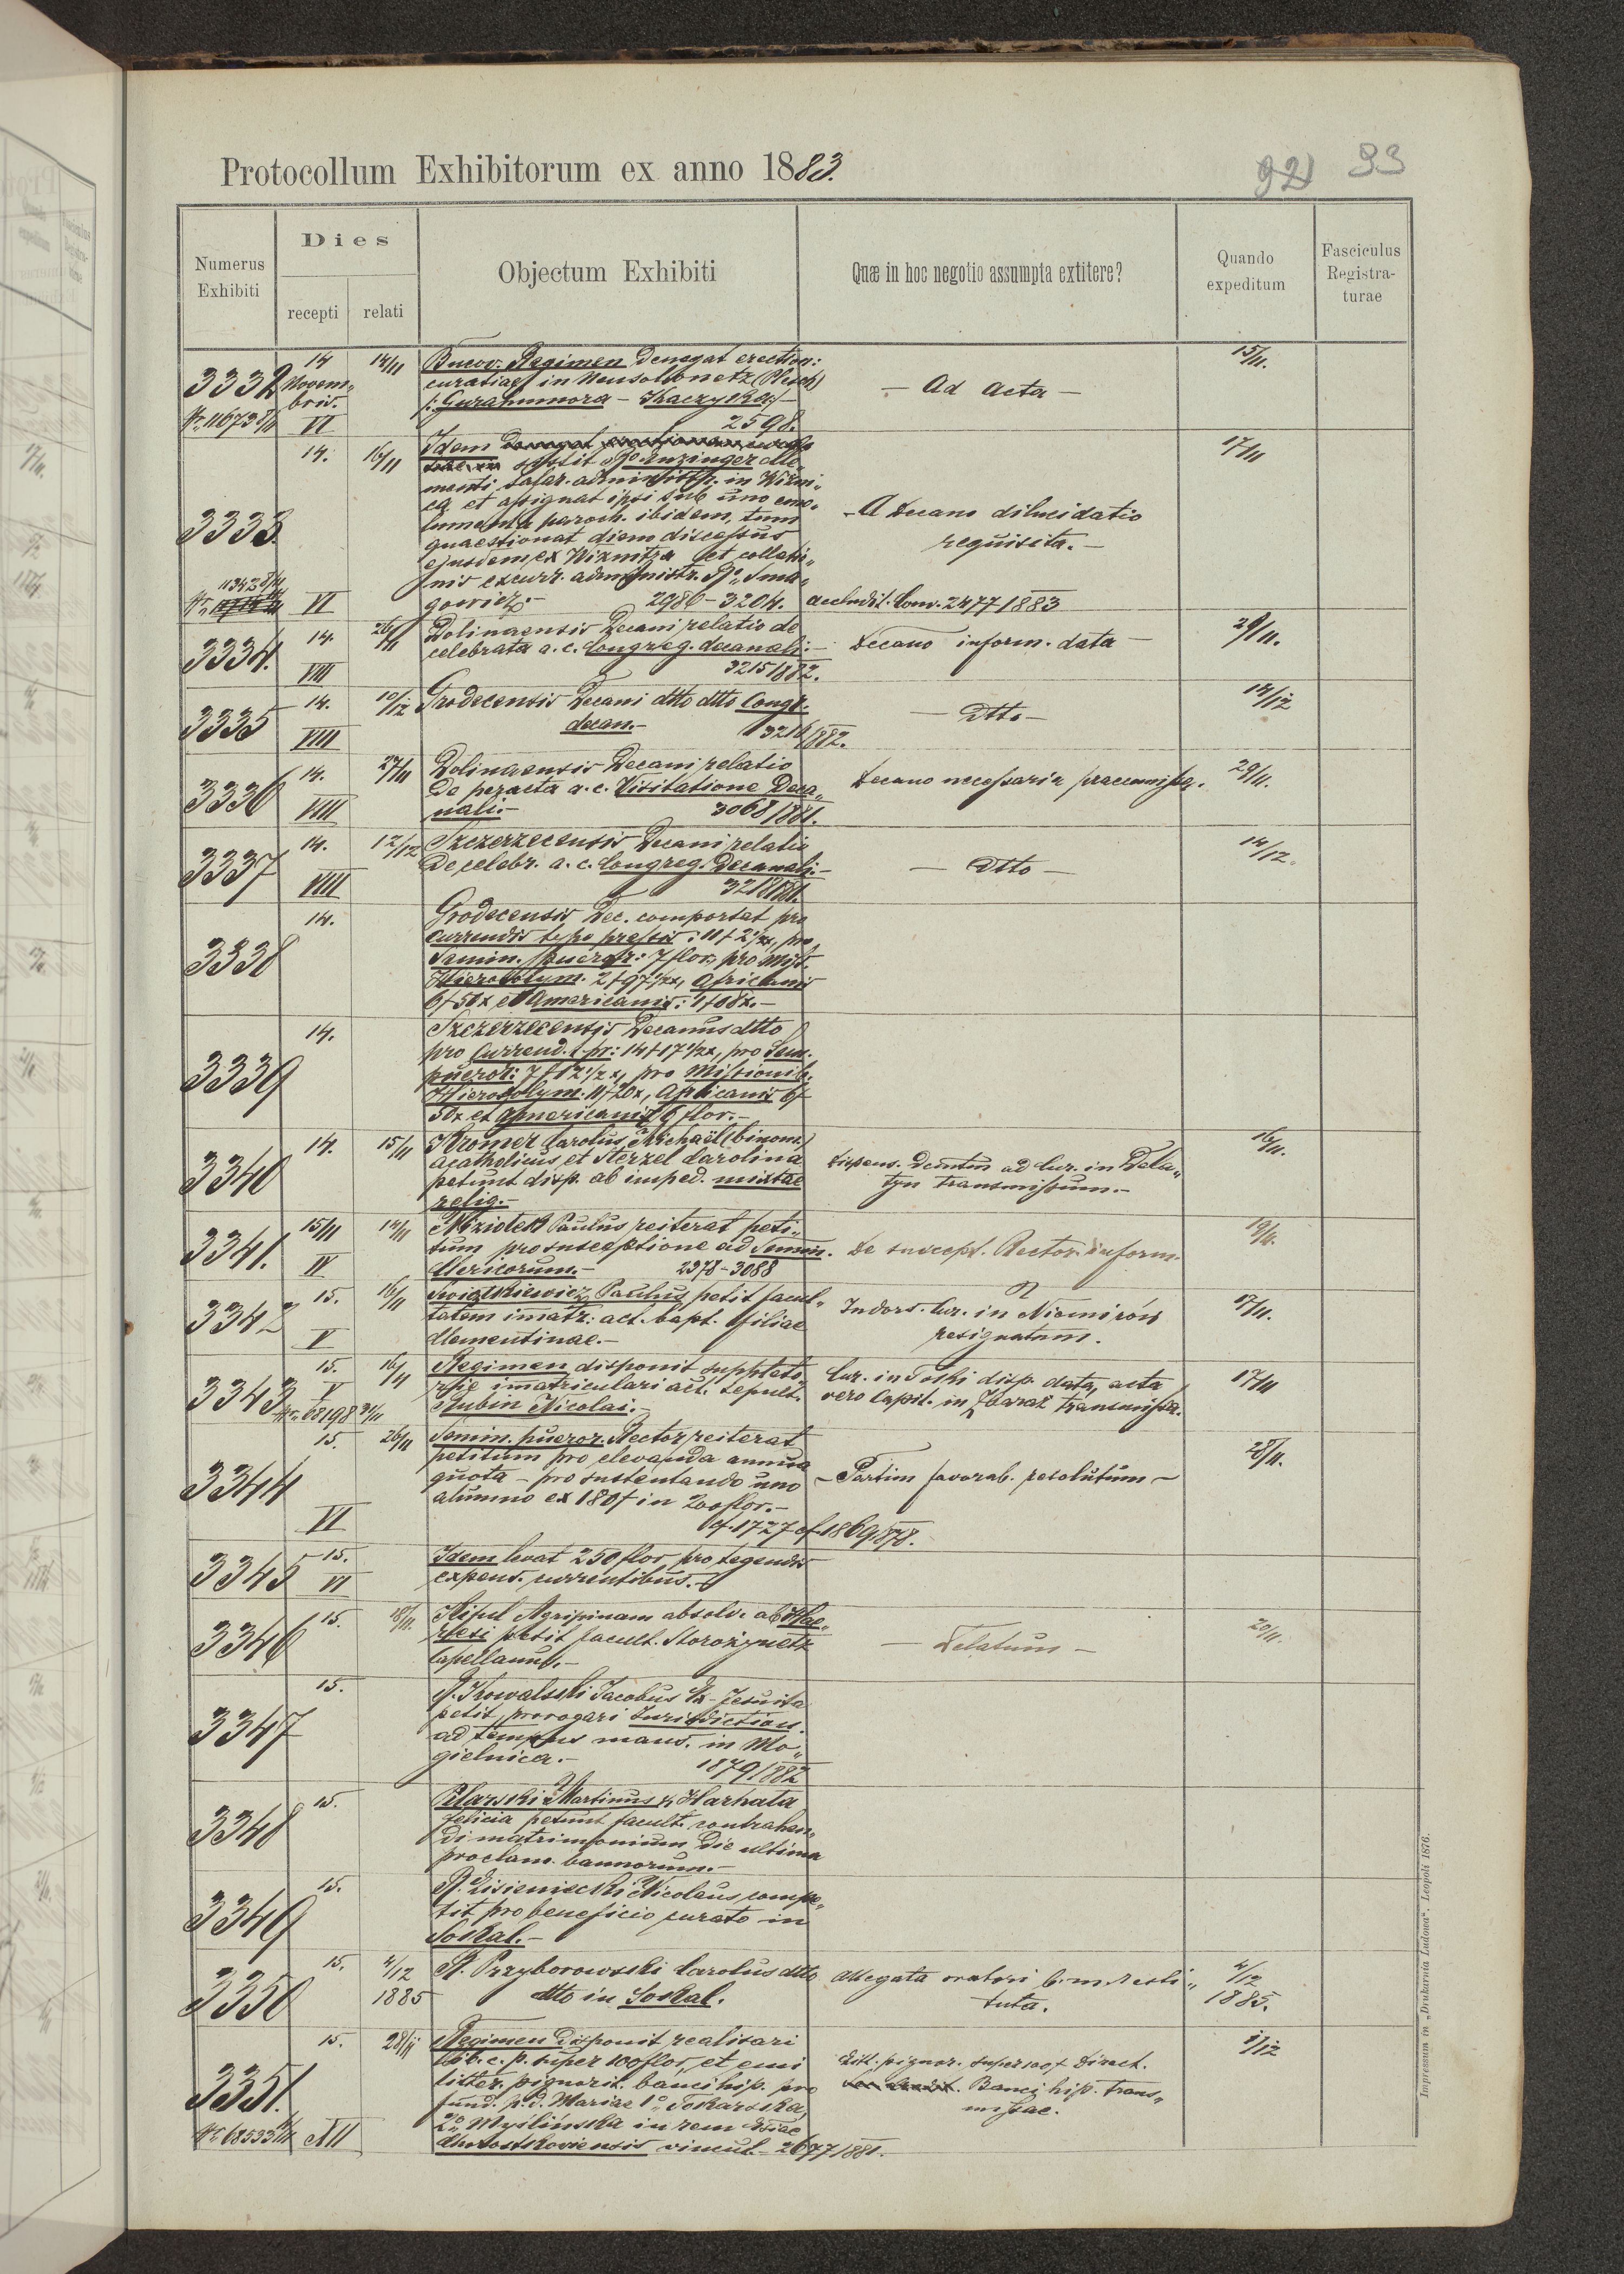 Protocollum Exhibitorum ex anno 1883.
92 93
Numerus Exhibiti
Dies
recepti
relati
Objectum Exhibiti
Quæ in hoc negotio assumpta extitere?
Quando expeditum
Fasciculus Registra-turae
3332 14 Novem- bris. 14/11
VI
Bucov. Regimen denegat erection:
curatiae in Neusolonetz (Plesch)
/: Gurahumora - Kaczyka :/
2598.
- Ad acta -
15/11.
3333. 14. 16/11
VI
Idem
sistit Anzinger Cle-
menti salar. administr. in Wizni-
ca et assignat ipsi sub uno emo-
lumenta paroch. ibidem, tum
quaestionat diem discessus
ejusdem ex Wiznitza et collati-
nis excurr. administr. Sma-
gowicz.- 2986-3204.
- A Decano dilucidatio
requisita. -
accludit. Com. 2477 1883
17/11
3334. 14. 26/11
VIII
Dolinaensis Decani relatio de
celebrata a. c. Congreg. decanali.-
3215 1882.
Decano inform. data -
29/11.
3335 14. 10/12
VIII
Grodecensis Decani dtto dtto Congr.
decan.- 3216/882.
- dtto -
14/12
3336 14. 27/11
VIII
Dolinaensis Decani relatio
de peracta a. c. Visitatione Deca-
nali.- 3068/881.
Decano necessaria praecommissa.
29/11.
3337 14. 12/12
VIII
Szczerzecensis Decani relatio
de celebr. a. c. Congreg. Decanali.-
- dtto -
14/12.
3338 14.
Grodecensis Dec. comportat pro
Currendis typo pressis: 11 f 2 1/2 x, pro
Semin. pueror: 7 flor, pro Miss.
Hierosolym. 2 f 97 1/2 x, Africanis
6 f 50 x et Americanis: 1 f 08 x.-
3339 14.
Szczerzecensis Decanus dtto
pro Currend. t. pr: 14 f 17 1/2 x, pro Sem.
pueror: 7 f 12 1/2 x, pro Missionib.
Hierosolym. 11 f 20 x, Africanis 6 f
50 x et Americanis 6 flor.-
3340 14. 15/11
Kromer Carolus Michaël (binom.)
acatholicus et Sterzel Carolina
petunt disp. ab imped. mixtae
relig.-
Dispens. Demtum ad Cur. in Dela-
tyn transmissum.-
16/11.
3341. 15/11 14/11
IV
Miziolek Paulus reiterat peti-
tum pro susceptione ad Semin.
Clericorum.- 2378-3088
De suscept. Rector inform.
19/11.
3342 15. 16/11
V
Swiątkiewicz Paulus petit facul-
tatem imatr: act. bapt. filiae
Clementinae.-
Indors. Cur. in Niemirów
resignatum.
17/11.
3343 15. 16/11
V
Nr. 68198 31/11
Regimen disponit suppleto-
rie imatriculari act. sepult.
Rubin Nicolai.-
Cur. in Toki disp. data, acta
vero Capit. in Zbaraż transmissa.
17/11
3344 15. 26/11
VI
Semin. pueror. Rector reiterat
petitum pro elevanda annua
quota - pro sustentando uno
alumno ex 180 f in 200 flor.-
cf. 1727 cf. 1869/878.
- Partim favorab. resolutum -
28/11.
3345 15.
VI
Idem levat 250 flor, pro tegendis
expens. currentibus.-
3346 15. 18/11.
Kipul Agripinam absolv. ab Hae-
resi petit facult. Storożynetz
Capellanus.-
- Delatum -
20/11.
3347 15.
P. Kowalski Jacobus Ex-Jesuita
petit prorogari Jurisdiction.
ad tempus mans. in Mo-
gielnica.- 1879/882
3348 15.
Pilarski Martinus & Harhata
Felicia petunt facult. contrahen-
di matrimonium die ultima
proclam. bannorum.-
3349 15.
P. Lisieniecki Nicolaus compe-
tit pro beneficio curato in
Sokal.-
3350 15. 4/12 1885
P. Przyborowski Carolus dtto
dtto in Sokal.
Allegata oratori b. m. resti-
tuta.
4/12 1885.
3351. 15. 28/11
Nr 68533 XII
Regimen disponit realisari
lib. c. p. super 100 flor, et emi
litter. pignorit. banci hip. pro
fund. p. d. Mariae 1o Tokarska,
2o Myślińska in rem Eccl̄ae
Chorostkoviensis vincul.- 2677/1881.
Litt. pignor. super 100 f Direct.
Banci hip. trans-
missae.
1/12
Impressum in „Drukarnia Ludowa“, Leopoli 1876.